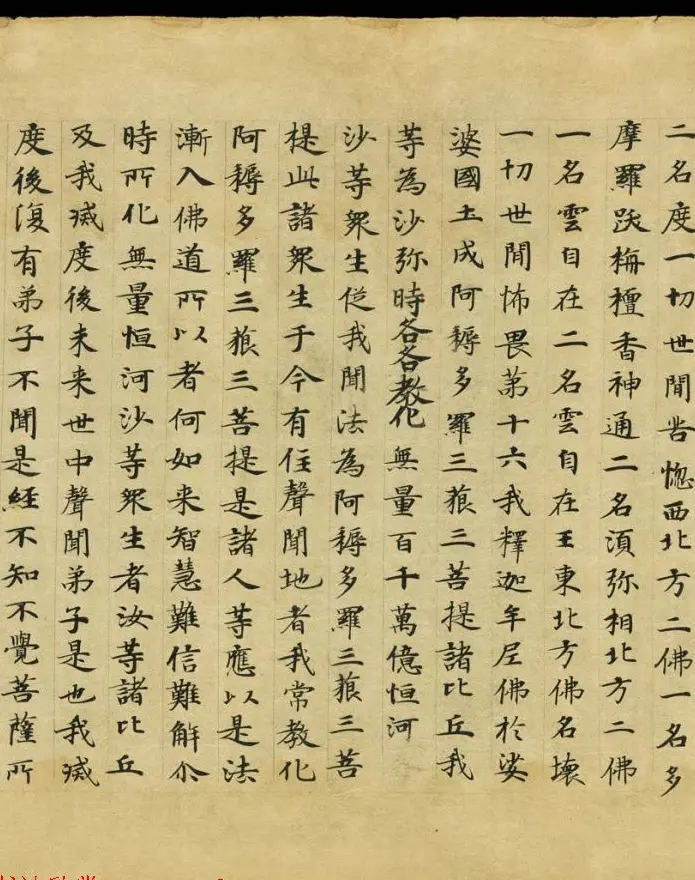 二名度一切世間苦惱西北方二佛一名多
摩羅跋栴檀香神通二名須弥相北方二佛
一名雲自在二名雲自在王東北方佛名壞
一切世間怖畏第十六我釋迦牟尼佛於娑
婆國土成阿耨多羅三藐三菩提諸比丘我
等為沙弥時各各教化無量百千萬億恒河
沙等眾生從我聞法為阿耨多羅三藐三菩
提此諸眾生于今有住聲聞地者我常教化
阿耨多羅三藐三菩提是諸人等應以是法
漸入佛道所以者何如来智慧難信難解尒
時所化無量恒河沙等眾生者汝等諸比丘
及我滅度後未来世中聲聞弟子是也我滅
度後復有弟子不聞是經不知不覺菩薩所